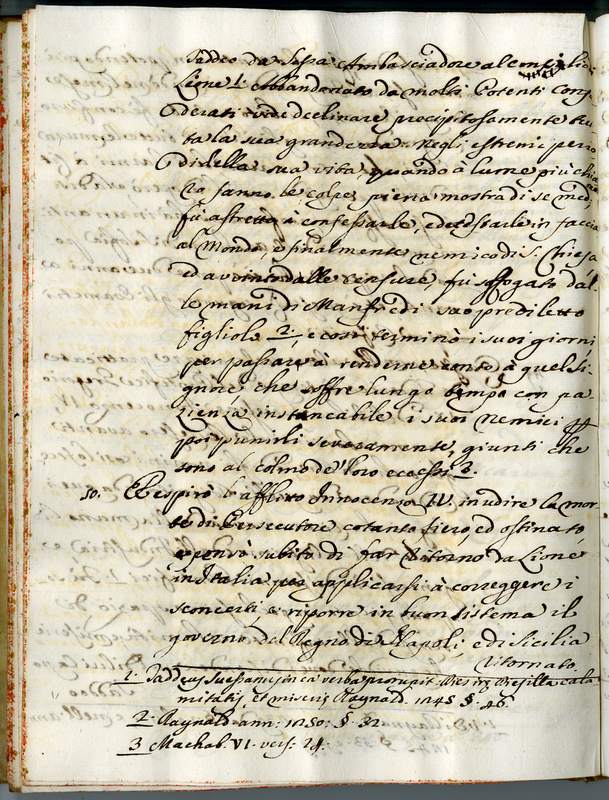 Taddeo da Sessa Ambasciadore al concilio di
Lione 1. Abbandonato da molti Potenti Conf
derati vide declinare precipitosamente tut
ta la sua grandezza. Negli estremi perio
di della sua vita, quando à lume più chia
ra fanno le colpe piena mostra di se med.
fù astretto à confessarle, e detestarle in faccia
al Mondo, e finalmente nemico di S. Chiesa
ed avvinto dalle censure, fù soffogato dal
le mani di Manfredi suo prediletto
figliolo 2, e così terminò i suoi giorni
per passare à renderne conto à quel Si
gnore, che soffre lungo tempo con pa
zienza instancabile i suoi nemici
poi punirli severamente, giunti che
sono al colmo de' loro eccessi 3.
50. Respirò l'afflitto Innocenzo IV. in udire la mor
te di Persecutore cotanto fiero, ed ostinato,
e pensò subito di far ritorno da Lione
in Italia per applicarsi à correggere i
sconcerti, e riporre in buon sistema il
governo del Regno di Napoli, e di Sicilia
ritornato
1. Taddeus Suessanus in ea verba prorupit: Dies ista, Dies illa cala
mitatis, et miseriæ Raynald. 1245 §. 46
2. Raynald. ann: 1250: §. 32
3 Machab. VI. vers: 14.